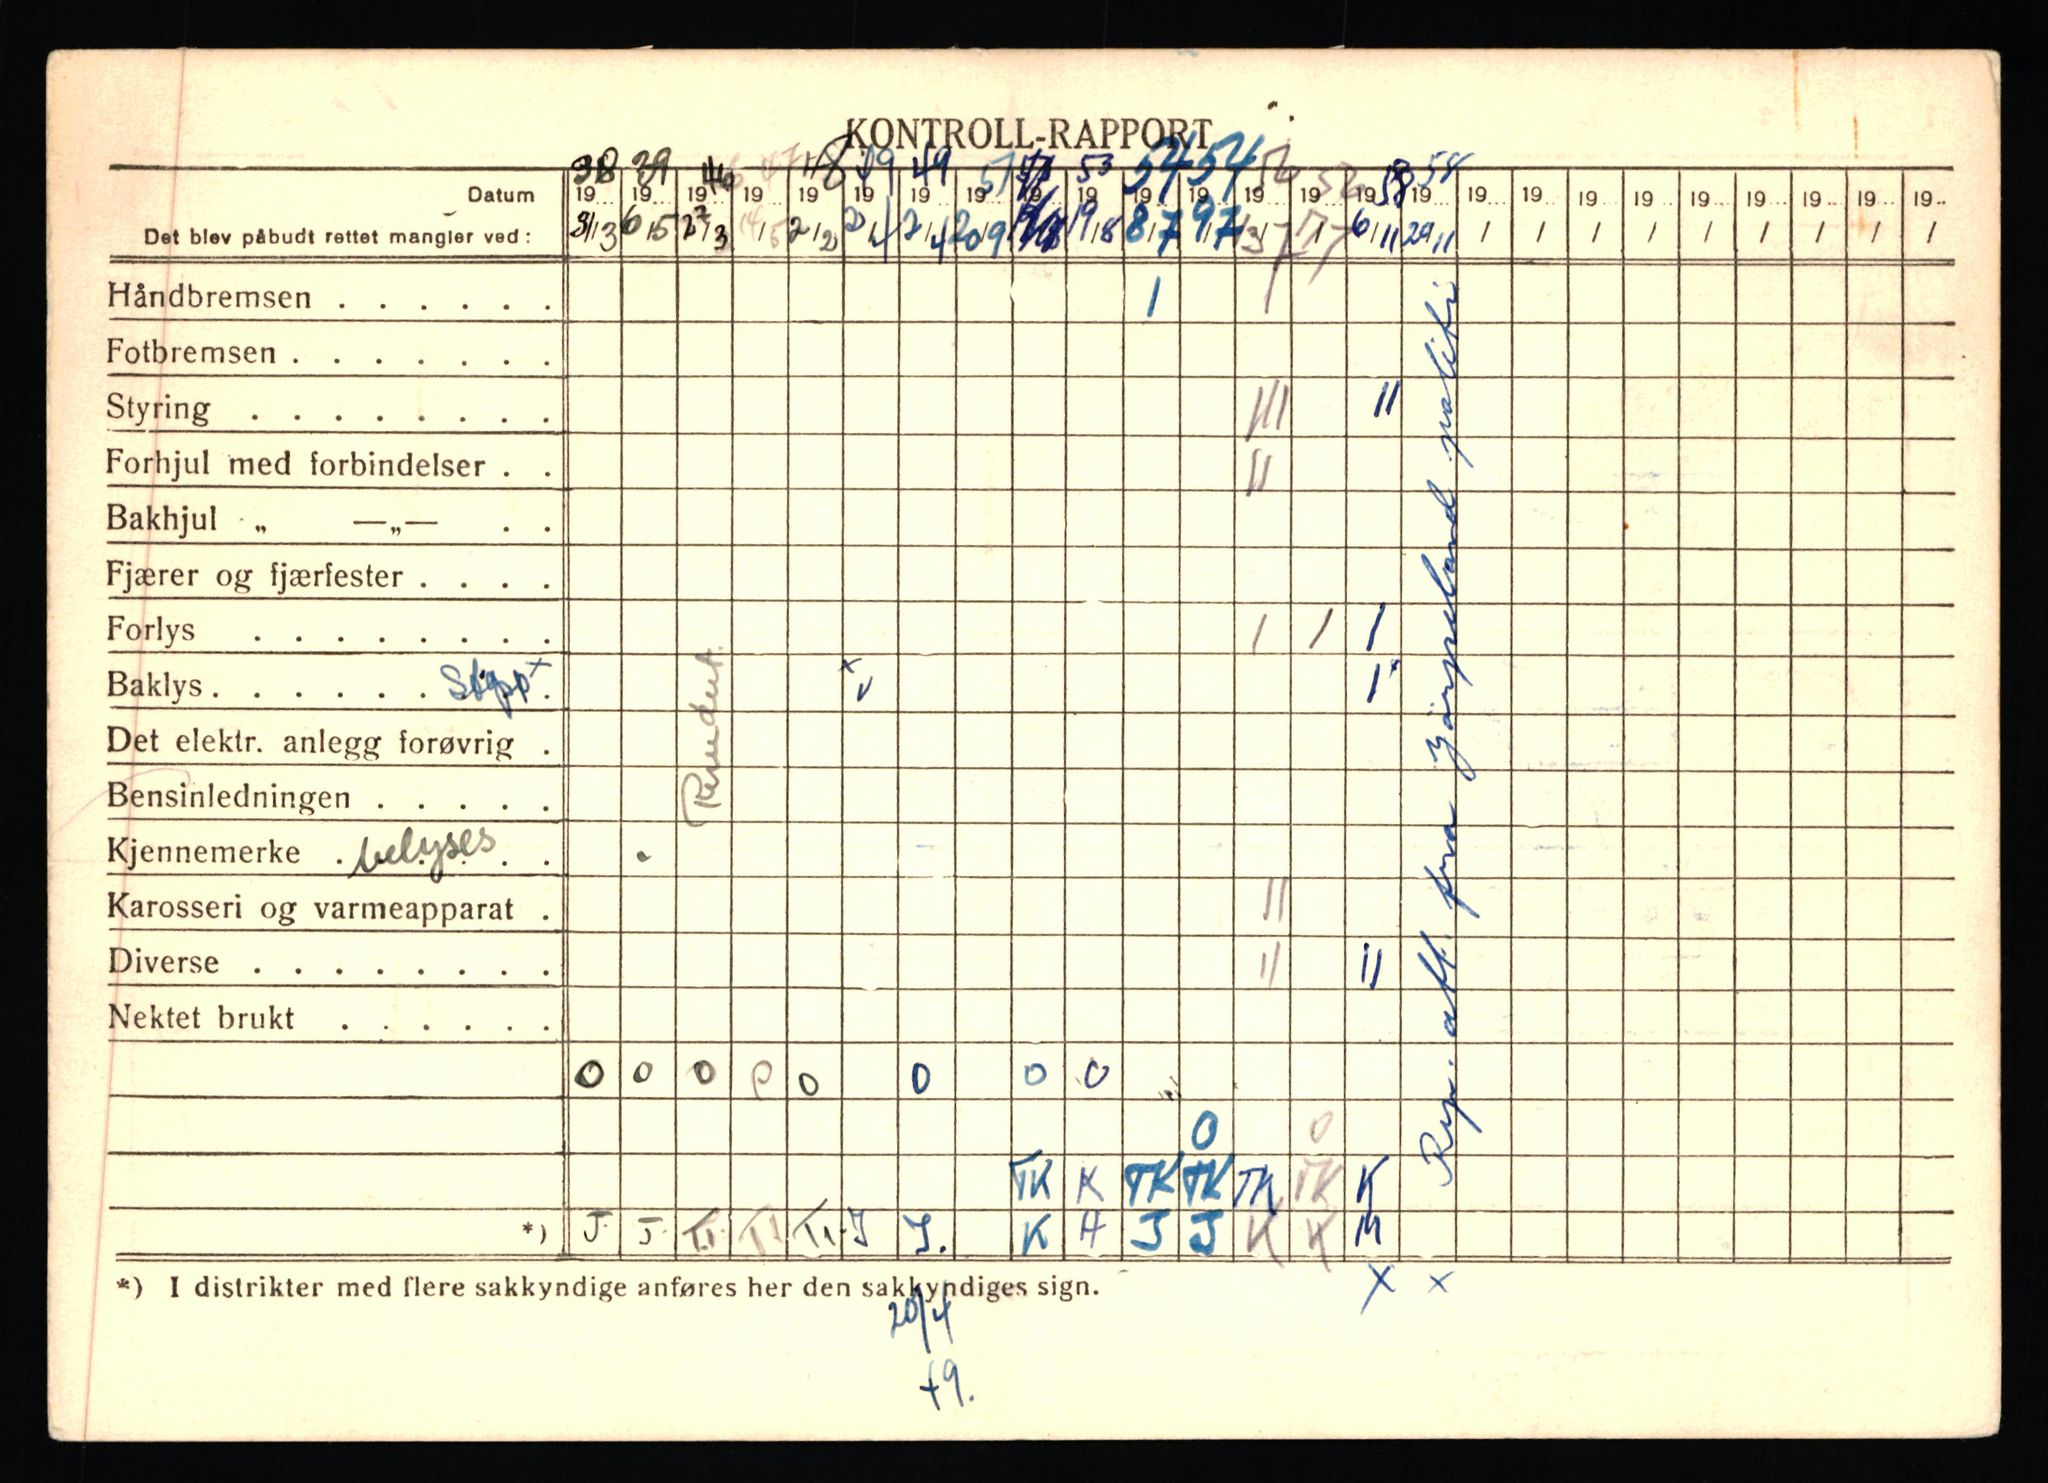 KONTROLL-RAPPORT
38 39 46 47 48 49 49 51 53 54 54 56 56 58 58
Datum 19 19 19 19 19 19 19 19 19 19 19 19 19 19 19 19 19 19 19 19 19 19 19 19 19
Det blev påbudt rettet mangler ved: 31/3 6/5 27/3 14/5 2/2 2/4 2/4 20/9 19/8 8/7 9/7 3/7 17/7 6/11 29/11 / / / / / / / / /
Håndbremsen . . . . . . I I
Fotbremsen . . . . . . .
Styring . . . . . . . . III II
Forhjul med forbindelser . . II
Bakhjul „ —„— . .
Fjærer og fjærfester . . . .
Forlys . . . . . . . . I I I
Baklys . . . . . . Stopp x . x v I x
Det elektr. anlegg forøvrig .
Bensinledningen . . . . .
Kjennemerke . belyses . .
Karosseri og varmeapparat . II
Diverse . . . . . . . . II II
Nektet brukt . . . . . .
Rep. att. fra Jørpeland politi
O O O O O O O O
O O
TK K TK TK TK TK K
*) J. J. T.I. T.I. T.I. J J. K H J J K K M
*) I distrikter med flere sakkyndige anføres her den sakkyndiges sign.
x x
20/4
49.